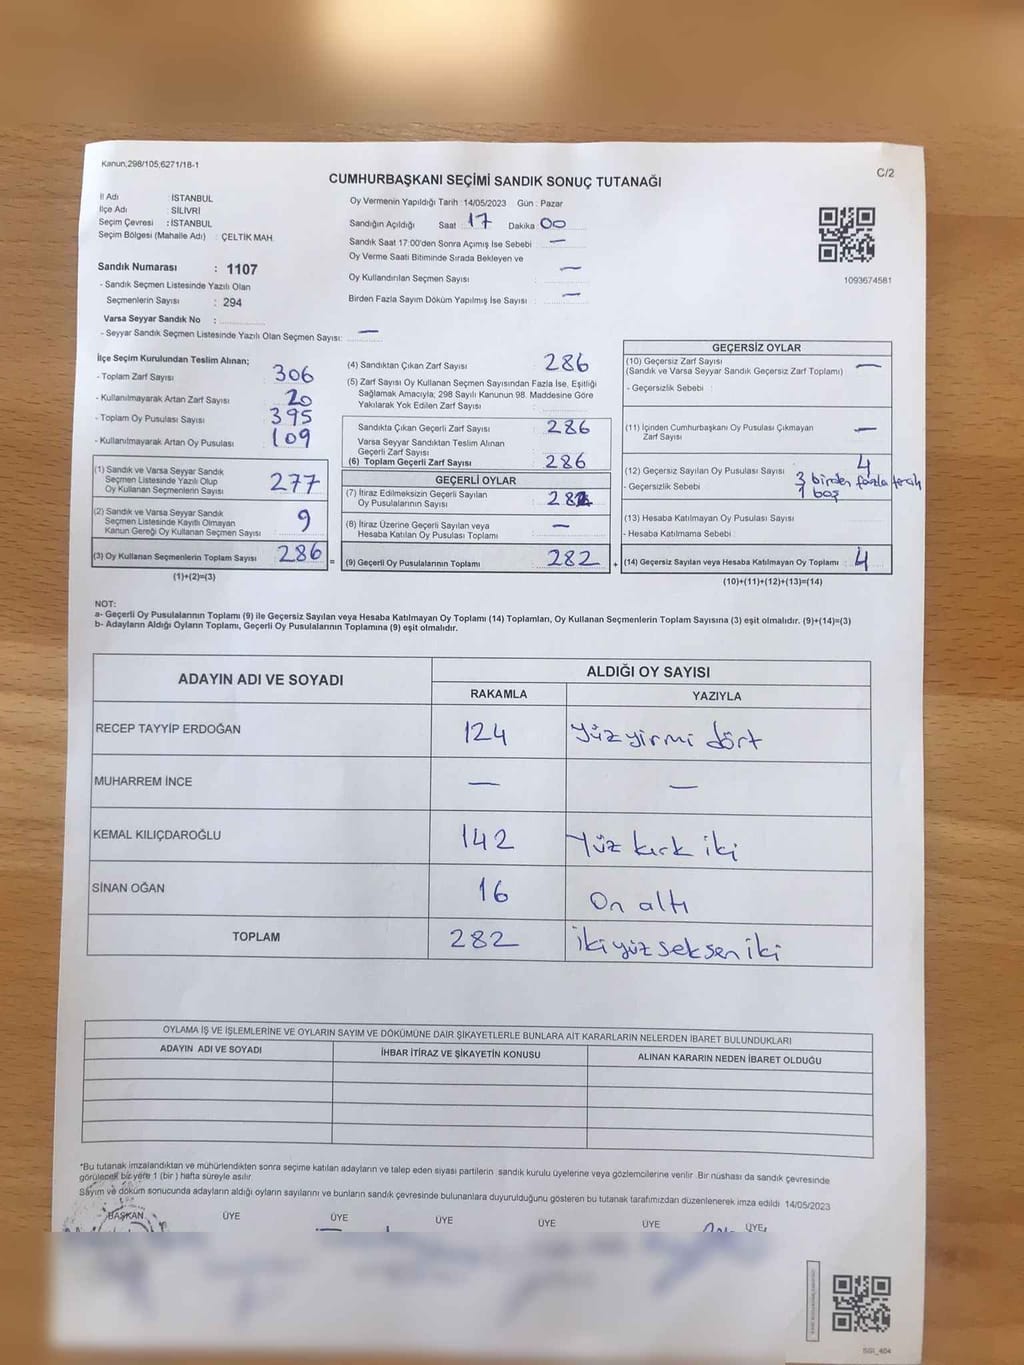 Kanun,298/105,6271/18-1
C/2
CUMHURBAŞKANI SEÇİMİ SANDIK SONUÇ TUTANAĞI
İl Adı : İSTANBUL
İlçe Adı : SİLİVRİ
Seçim Çevresi : İSTANBUL
Seçim Bölgesi (Mahalle Adı) : ÇELTİK MAH.
Sandık Numarası : 1107
- Sandık Seçmen Listesinde Yazılı Olan
Seçmenlerin Sayısı : 294
Varsa Seyyar Sandık No :
- Seyyar Sandık Seçmen Listesinde Yazılı Olan Seçmen Sayısı: —
Oy Vermenin Yapıldığı Tarih :14/05/2023 Gün : Pazar
Sandığın Açıldığı Saat : 17 Dakika 00
Sandık Saat 17:00'den Sonra Açımış İse Sebebi : —
Oy Verme Saati Bitiminde Sırada Bekleyen ve
Oy Kullandırılan Seçmen Sayısı : —
Birden Fazla Sayım Döküm Yapılmış İse Sayısı : —
1093674581
İlçe Seçim Kurulundan Teslim Alınan;
- Toplam Zarf Sayısı : 306
- Kullanılmayarak Artan Zarf Sayısı : 20
- Toplam Oy Pusulası Sayısı : 395
- Kullanılmayarak Artan Oy Pusulası : 109
(1) Sandık ve Varsa Seyyar Sandık
Seçmen Listesinde Yazılı Olup
Oy Kullanan Seçmenlerin Sayısı : 277
(2) Sandık ve Varsa Seyyar Sandık
Seçmen Listesinde Kayıtlı Olmayan
Kanun Gereği Oy Kullanan Seçmen Sayısı : 9
(3) Oy Kullanan Seçmenlerin Toplam Sayısı : 286
(1)+(2)=(3)
(4) Sandıktan Çıkan Zarf Sayısı : 286
(5) Zarf Sayısı Oy Kullanan Seçmen Sayısından Fazla İse, Eşitliği
Sağlamak Amacıyla; 298 Sayılı Kanunun 98. Maddesine Göre
Yakılarak Yok Edilen Zarf Sayısı :
Sandıkta Çıkan Geçerli Zarf Sayısı : 286
Varsa Seyyar Sandıktan Teslim Alınan
Geçerli Zarf Sayısı :
(6) Toplam Geçerli Zarf Sayısı : 286
GEÇERLİ OYLAR
(7) İtiraz Edilmeksizin Geçerli Sayılan
Oy Pusulalarının Sayısı : 282
(8) İtiraz Üzerine Geçerli Sayılan veya
Hesaba Katılan Oy Pusulası Toplamı : —
=
(9) Geçerli Oy Pusulalarının Toplamı : 282
+
GEÇERSİZ OYLAR
(10) Geçersiz Zarf Sayısı : —
(Sandık ve Varsa Seyyar Sandık Geçersiz Zarf Toplamı)
- Geçersizlik Sebebi :
(11) İçinden Cumhurbaşkanı Oy Pusulası Çıkmayan
Zarf Sayısı : —
(12) Geçersiz Sayılan Oy Pusulası Sayısı : 4
- Geçersizlik Sebebi : 3 birden fazla tercih
1 boş
(13) Hesaba Katılmayan Oy Pusulası Sayısı :
- Hesaba Katılmama Sebebi :
(14) Geçersiz Sayılan veya Hesaba Katılmayan Oy Toplamı : 4
(10)+(11)+(12)+(13)=(14)
NOT:
a- Geçerli Oy Pusulalarının Toplamı (9) ile Geçersiz Sayılan veya Hesaba Katılmayan Oy Toplamı (14) Toplamları, Oy Kullanan Seçmenlerin Toplam Sayısına (3) eşit olmalıdır. (9)+(14)=(3)
b- Adayların Aldığı Oyların Toplamı, Geçerli Oy Pusulalarının Toplamına (9) eşit olmalıdır.
ADAYIN ADI VE SOYADI ALDIĞI OY SAYISI
RAKAMLA YAZIYLA
RECEP TAYYİP ERDOĞAN 124 Yüz yirmi dört
MUHARREM İNCE — —
KEMAL KILIÇDAROĞLU 142 Yüz kırk iki
SİNAN OĞAN 16 On altı
TOPLAM 282 İki yüz seksen iki
OYLAMA İŞ VE İŞLEMLERİNE VE OYLARIN SAYIM VE DÖKÜMÜNE DAİR ŞİKAYETLERLE BUNLARA AİT KARARLARIN NELERDEN İBARET BULUNDUKLARI
ADAYIN ADI VE SOYADI İHBAR İTİRAZ VE ŞİKAYETİN KONUSU ALINAN KARARIN NEDEN İBARET OLDUĞU
*Bu tutanak imzalandıktan ve mühürlendikten sonra seçime katılan adayların ve talep eden siyasi partilerin sandık kurulu üyelerine veya gözlemcilerine verilir. Bir nüshası da sandık çevresinde
görülecek bir yere 1 (bir) hafta süreyle asılır.
Sayım ve döküm sonucunda adayların aldığı oyların sayılarını ve bunların sandık çevresinde bulunanlara duyurulduğunu gösteren bu tutanak tarafımızdan düzenlenerek imza edildi 14/05/2023
BAŞKAN ÜYE ÜYE ÜYE ÜYE ÜYE ÜYE
SGI_404